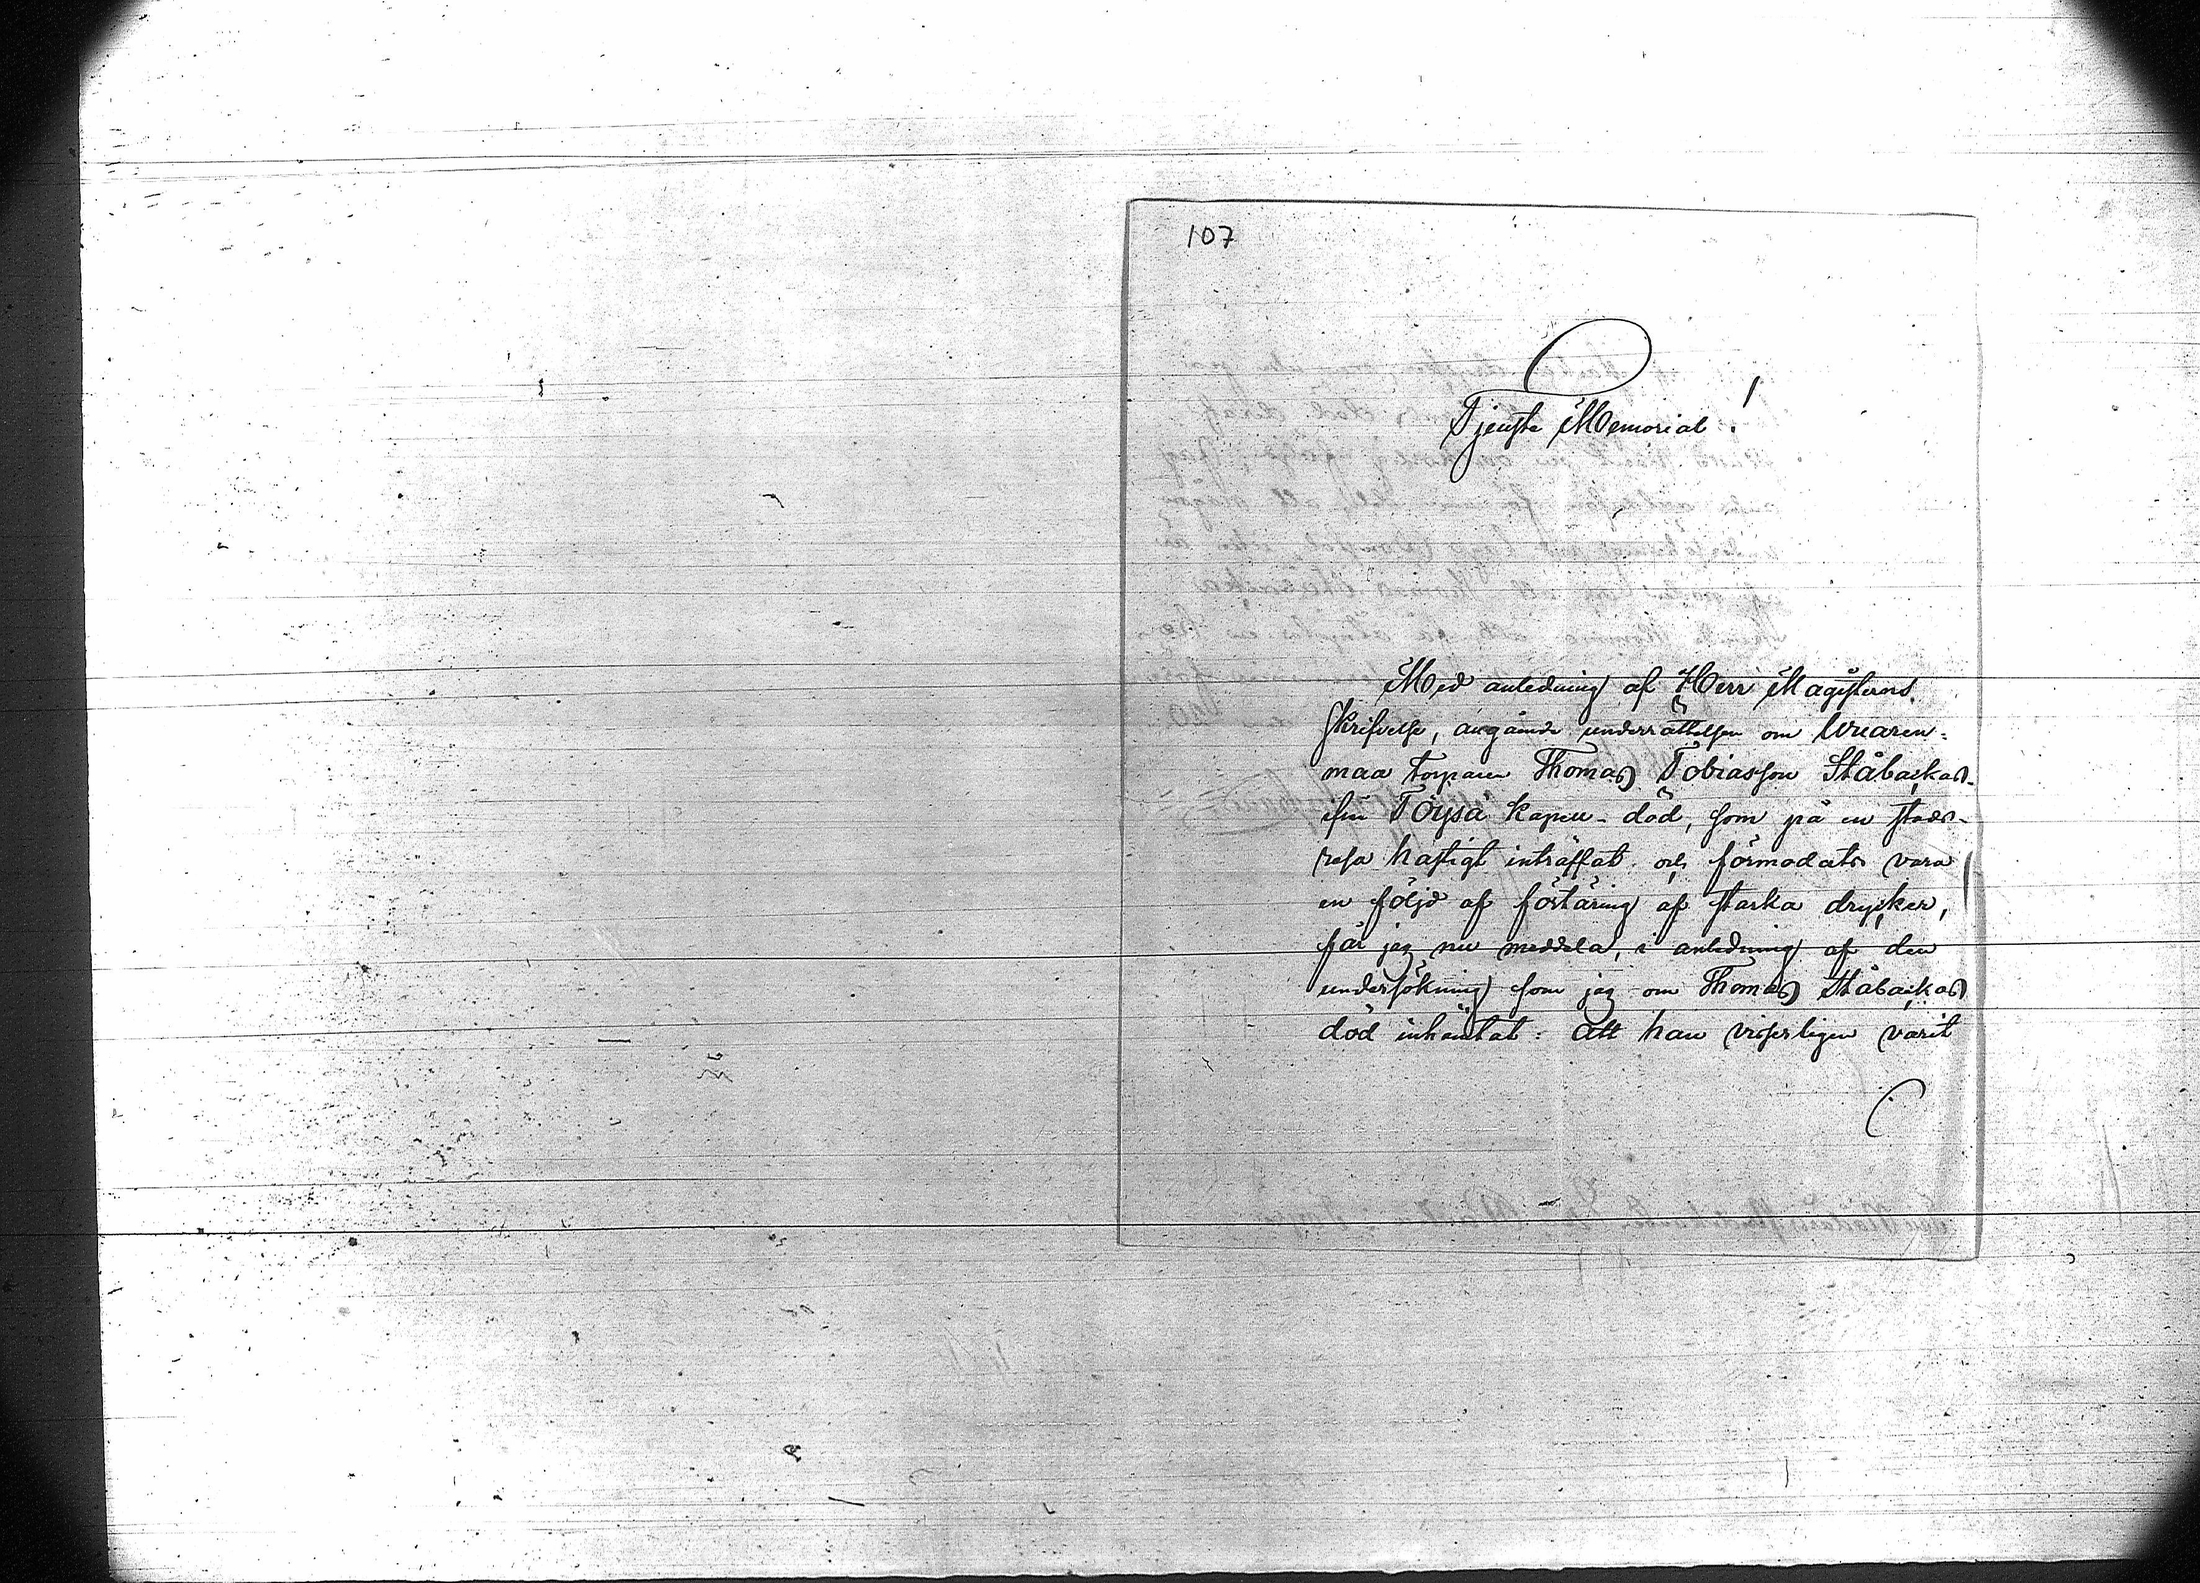 107
Tjenste Memorial!
Med anledning af Herr Magisterns
skrifvelse, angående underrättelsen om Wuaren-
maa torparen Thomas Tobiasson Ståbackas
ifrån Töysa Kapell - död, som på en stads-
resa hastigt inträffat och förmodats vara
en följd af förtäring af starka drycker,
får jag nu meddela, i anledning af den
undersökning som jag om Thomas Ståbackas
död inhäntat: att han visserligen varit